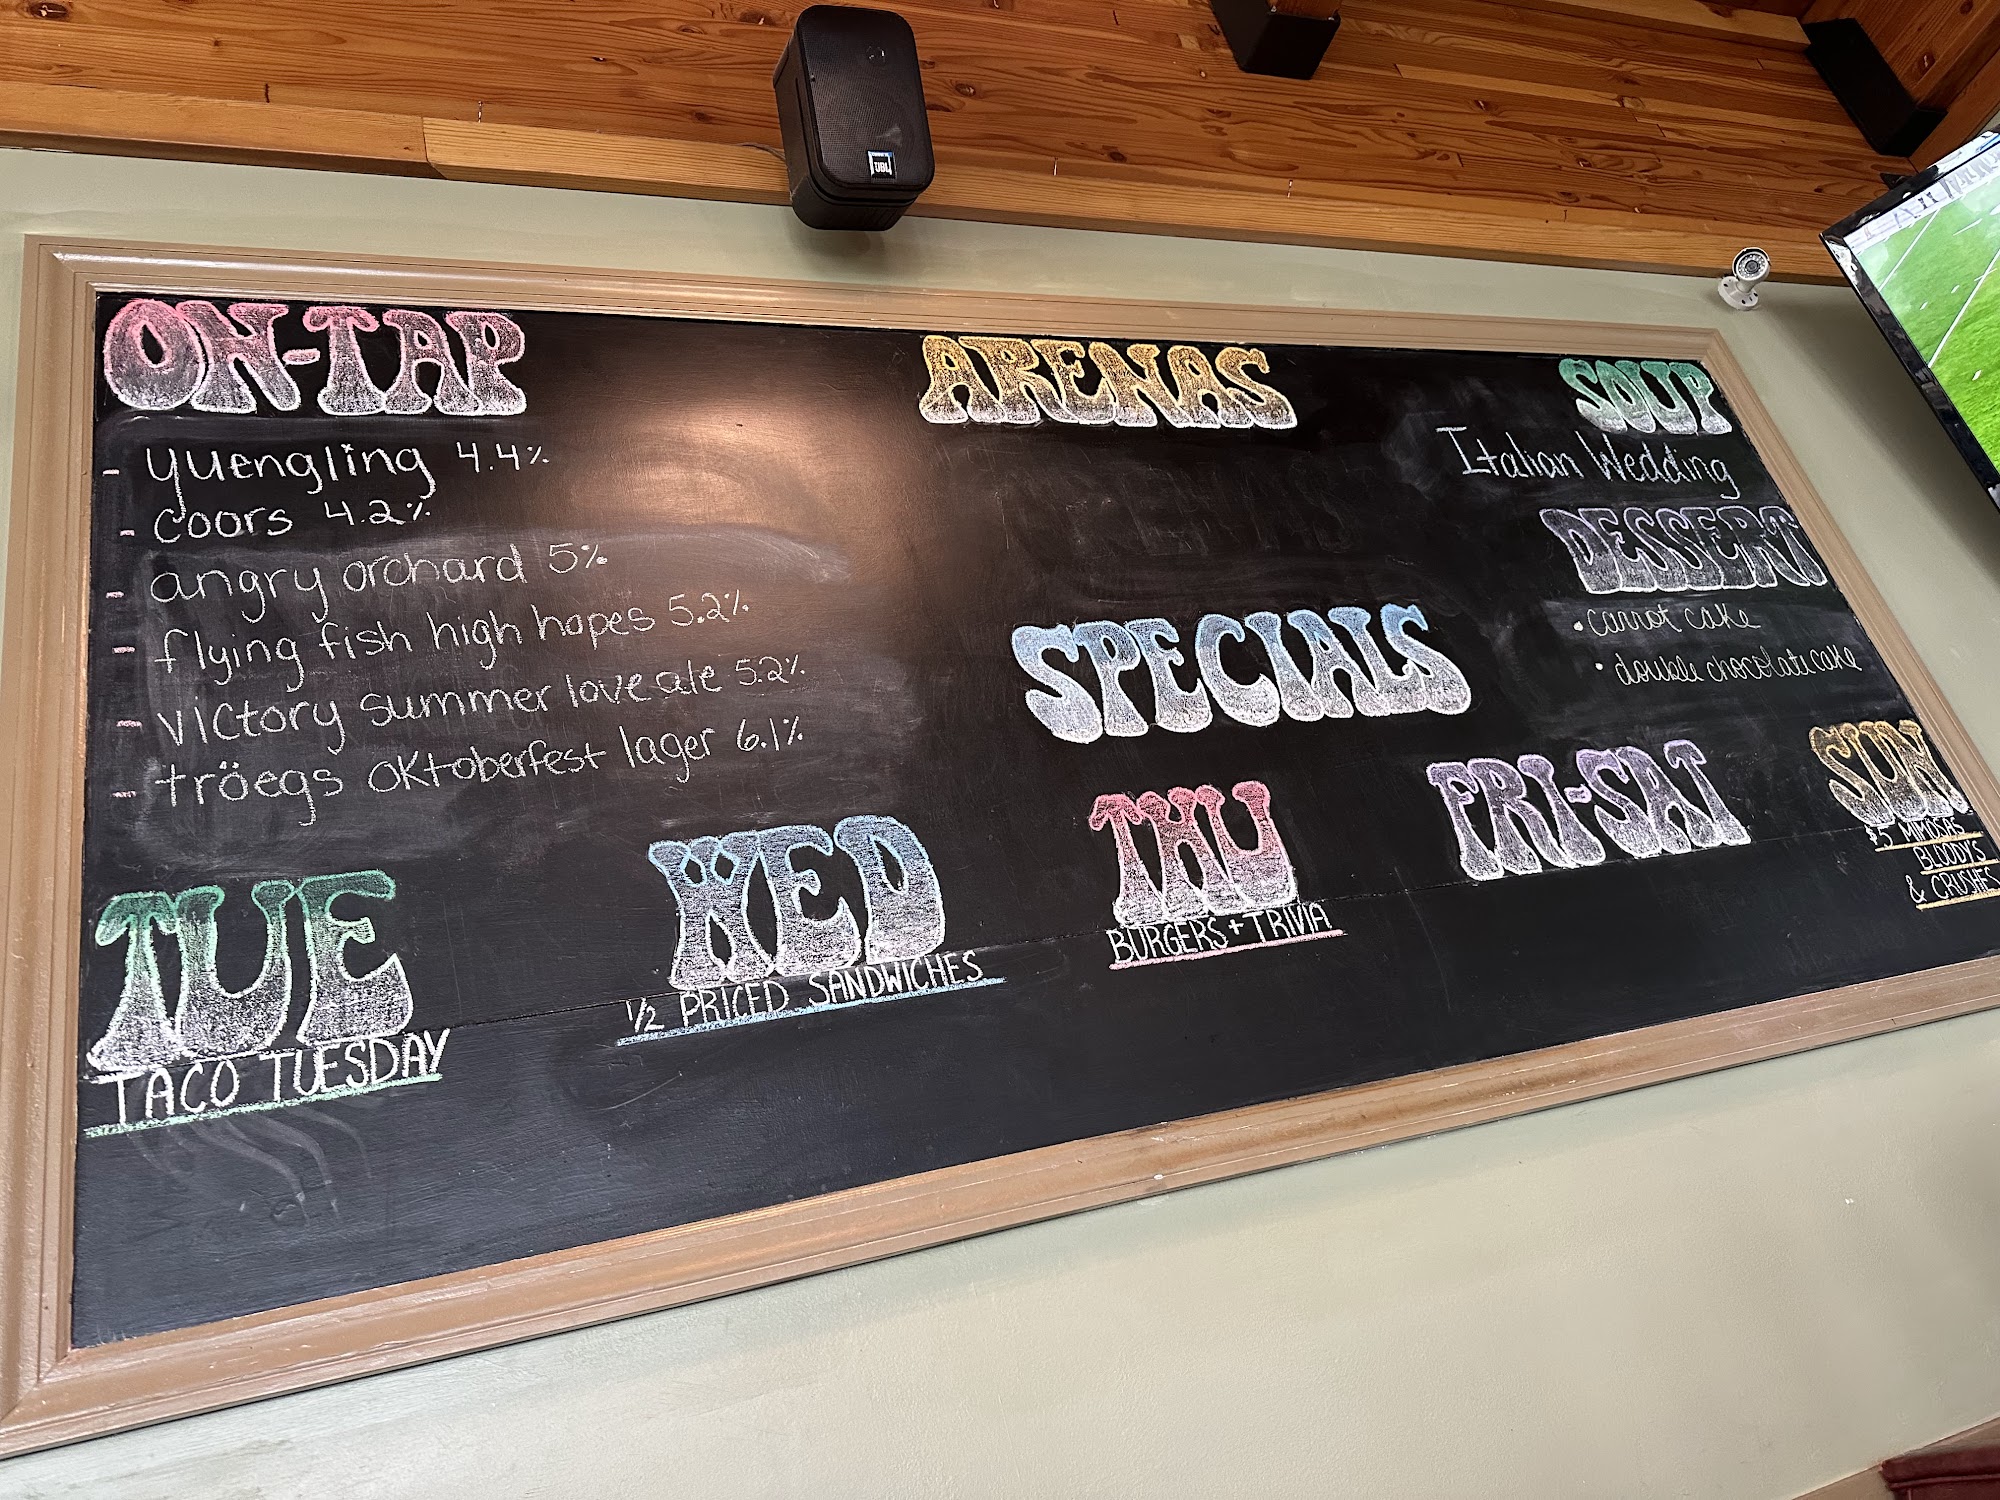 JBL
ON-TAP
- yuengling 4.4%
- coors 4.2%
- angry orchard 5%
- flying fish high hopes 5.2%
- victory summer love ale 5.2%
- tröegs oktoberfest lager 6.1%
ARENAS
SPECIALS
SOUP
Italian Wedding
DESSERT
• carrot cake
• double chocolate cake
TUE
TACO TUESDAY
WED
1/2 PRICED SANDWICHES
THU
BURGERS + TRIVIA
FRI-SAT
SUN
$5 MIMOSAS
BLOODY'S
& CRUSHES